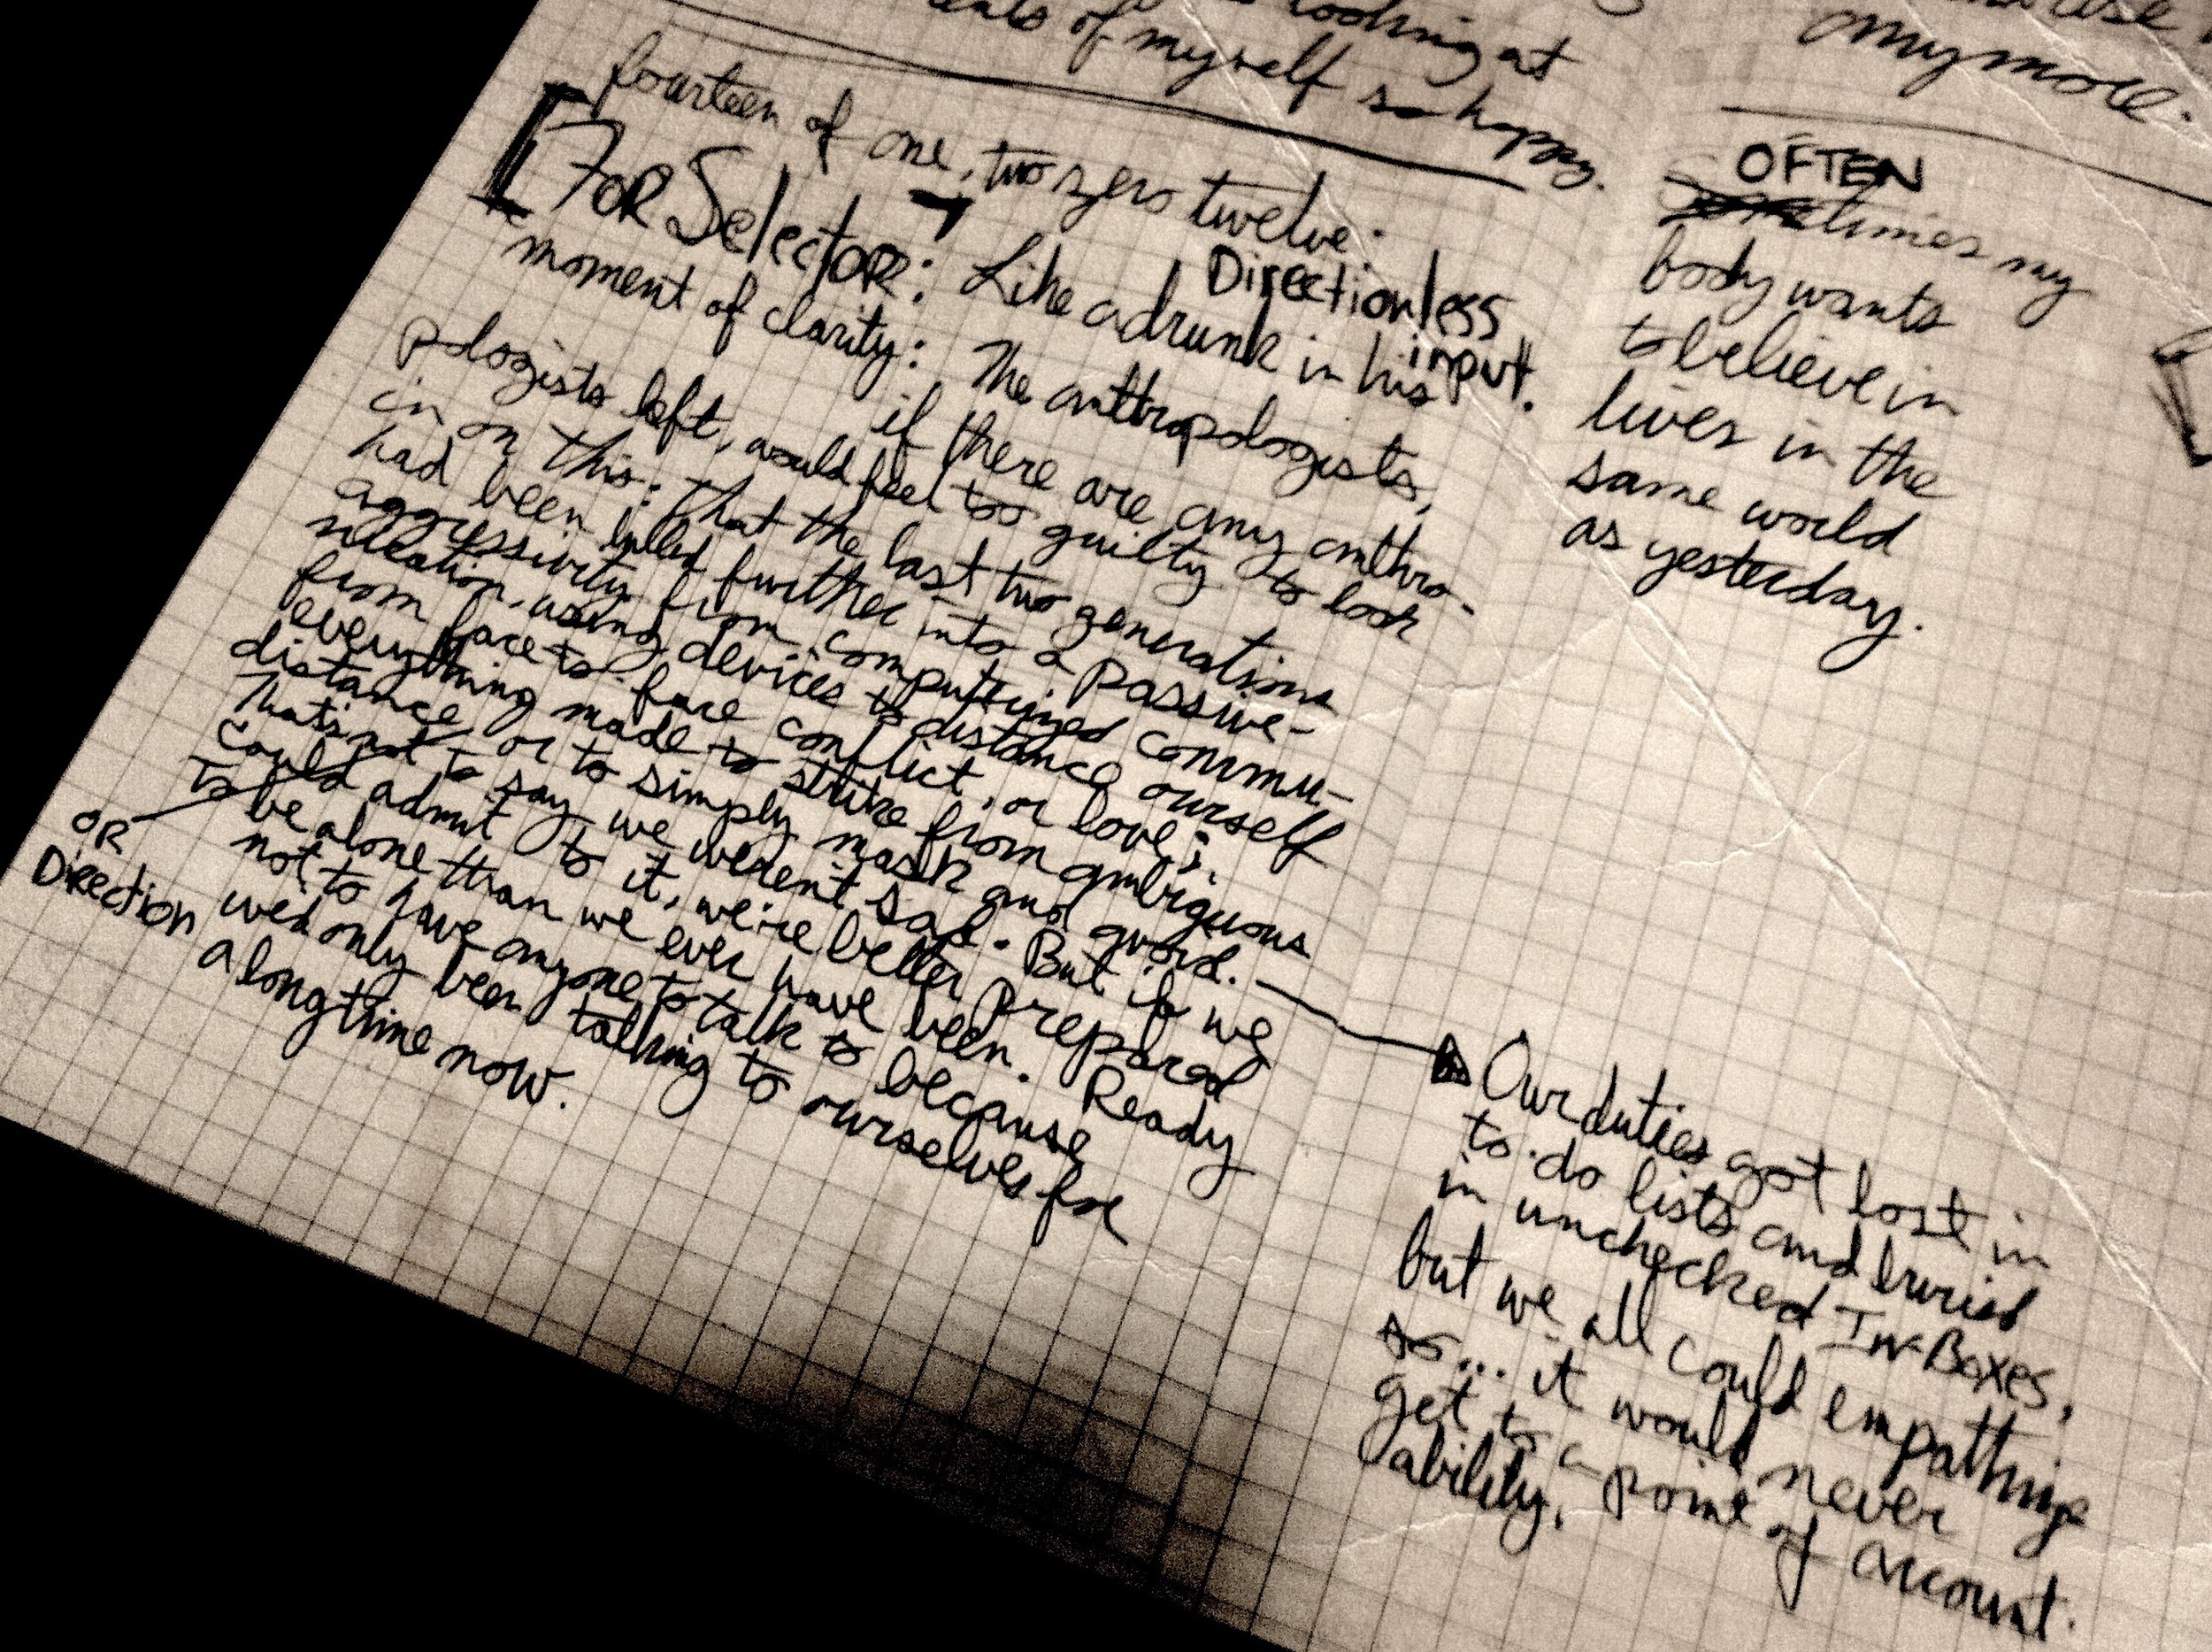 looking at
of myself so happy.
fourteen of one, two zero twelve:
[FOR SelectOR: Like a drunk in his
Directionless
input.
moment of clarity: The anthropologists,
if there are any anthro-
pologists left, would feel too guilty to look
in on this: that the last two generations
had been lulled further into a passive-
aggressivity from computerized commu-
nication, using devices to distance ourself
from face to face conflict, or love;
everything made to strike from ambiguous
distance, or to simply mask and avoid.
That's not to say we weren't sad. But if we
could admit to it, we're better prepared
to be alone than we ever have been. Ready
not to have anyone to talk to because
we'd only been talking to ourselves for
a long time now.
OR
Direction
anymore.
OFTEN
Sometimes my
body wants
to believe in
lives in the
same world
as yesterday.
Our duties got lost in
to-do lists and buried
in unchecked In-Boxes,
but we all could empathize
so... it would never
get to a point of account-
ability.